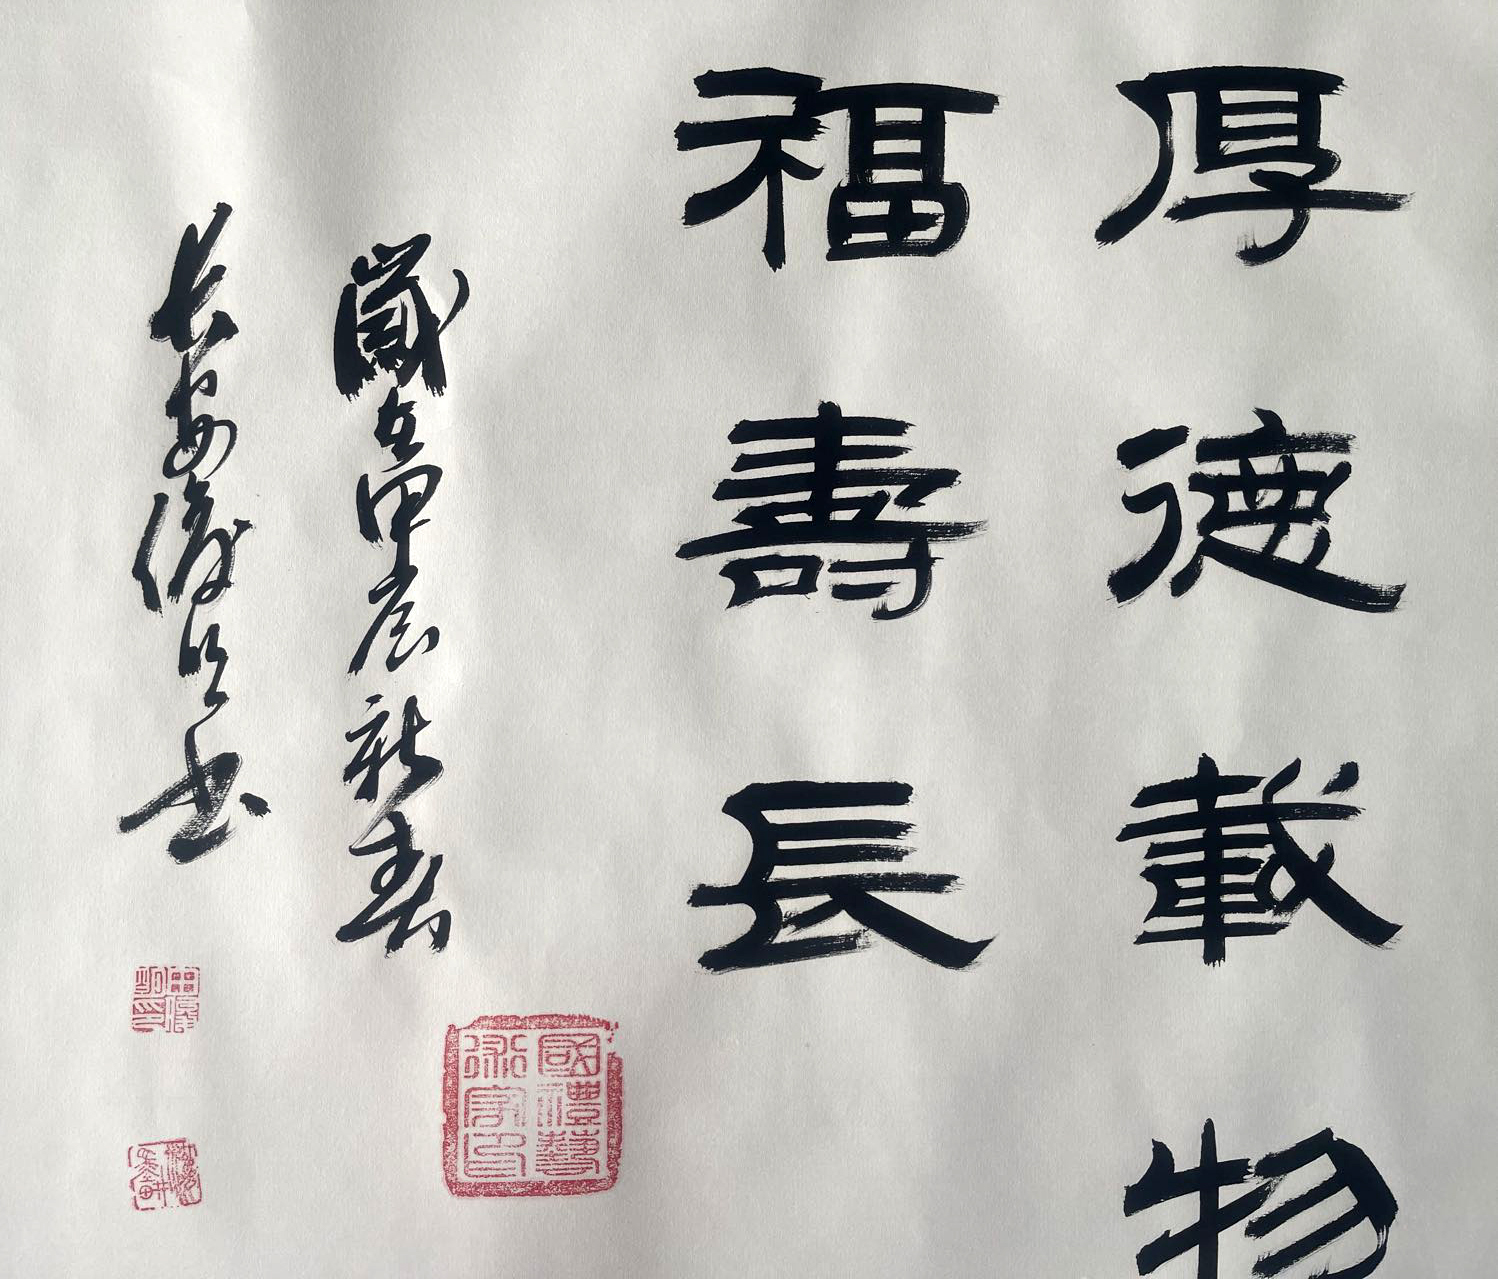 厚德載物
福壽長
歲在甲辰新春
長安俊明書
國禮藝術家印